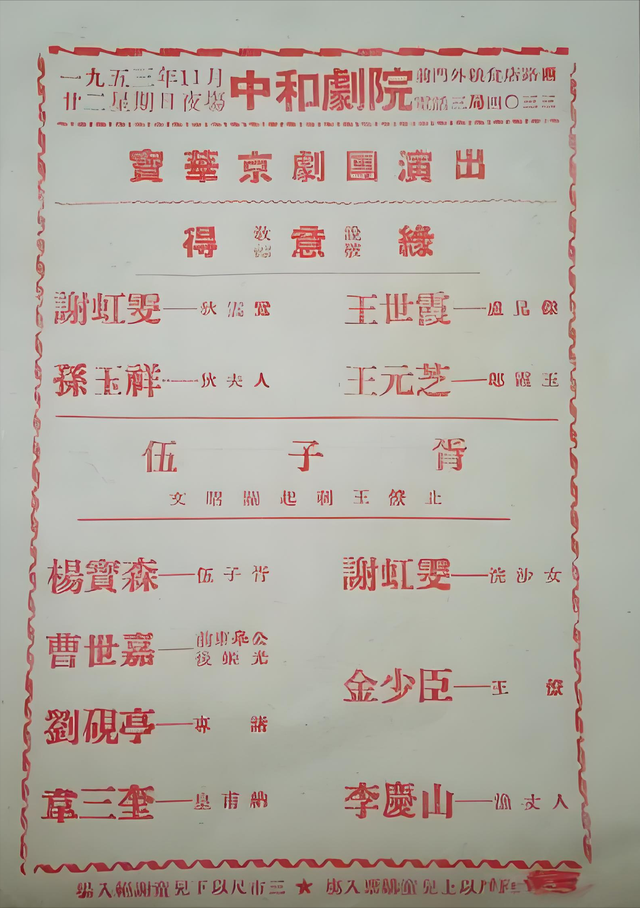 一九五三年11月
廿二星期日夜場
中和劇院
前門外糧食店路西
電話三局四〇三三
寶華京劇團演出
得 教鏢 意 說破 緣
謝虹雯—狄雲鸞 王世霞—盧昆傑
孫玉祥—狄夫人 王元芝—郎霞玉
伍子胥
文昭關起刺王僚止
楊寶森—伍子胥 謝虹雯—浣沙女
曹世嘉—前東皋公 後姬光
金少臣—王僚
劉硯亭—專諸
韋三奎—皇甫訥 李慶山—漁丈人
尺以上兒童購票入場★三市尺以下兒童謝絕入場